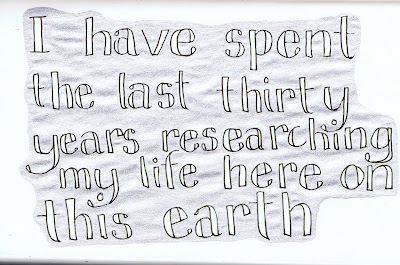 I have spent
the last thirty
years researching
my life here on
this earth